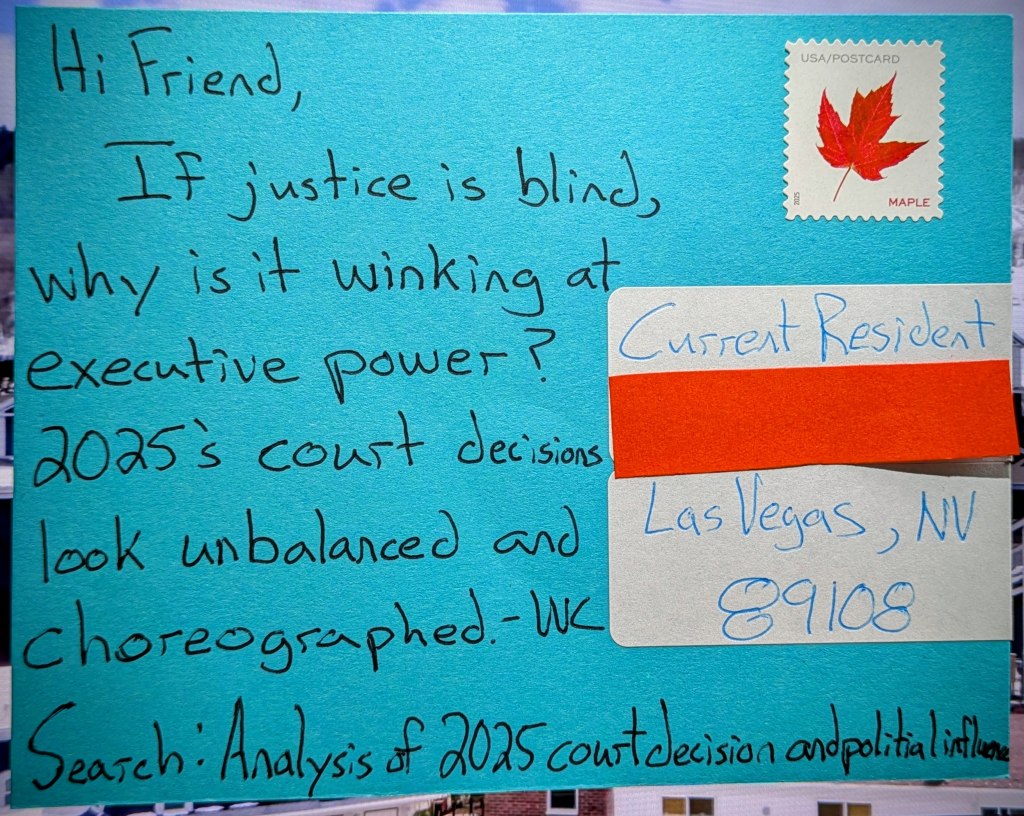 Hi Friend,
USA/POSTCARD
2025
MAPLE
If justice is blind,
why is it winking at
executive power?
2025's court decisions
look unbalanced and
choreographed.-WC
Current Resident
Las Vegas, NV
89108
Search: Analysis of 2025 court decision and politial influence